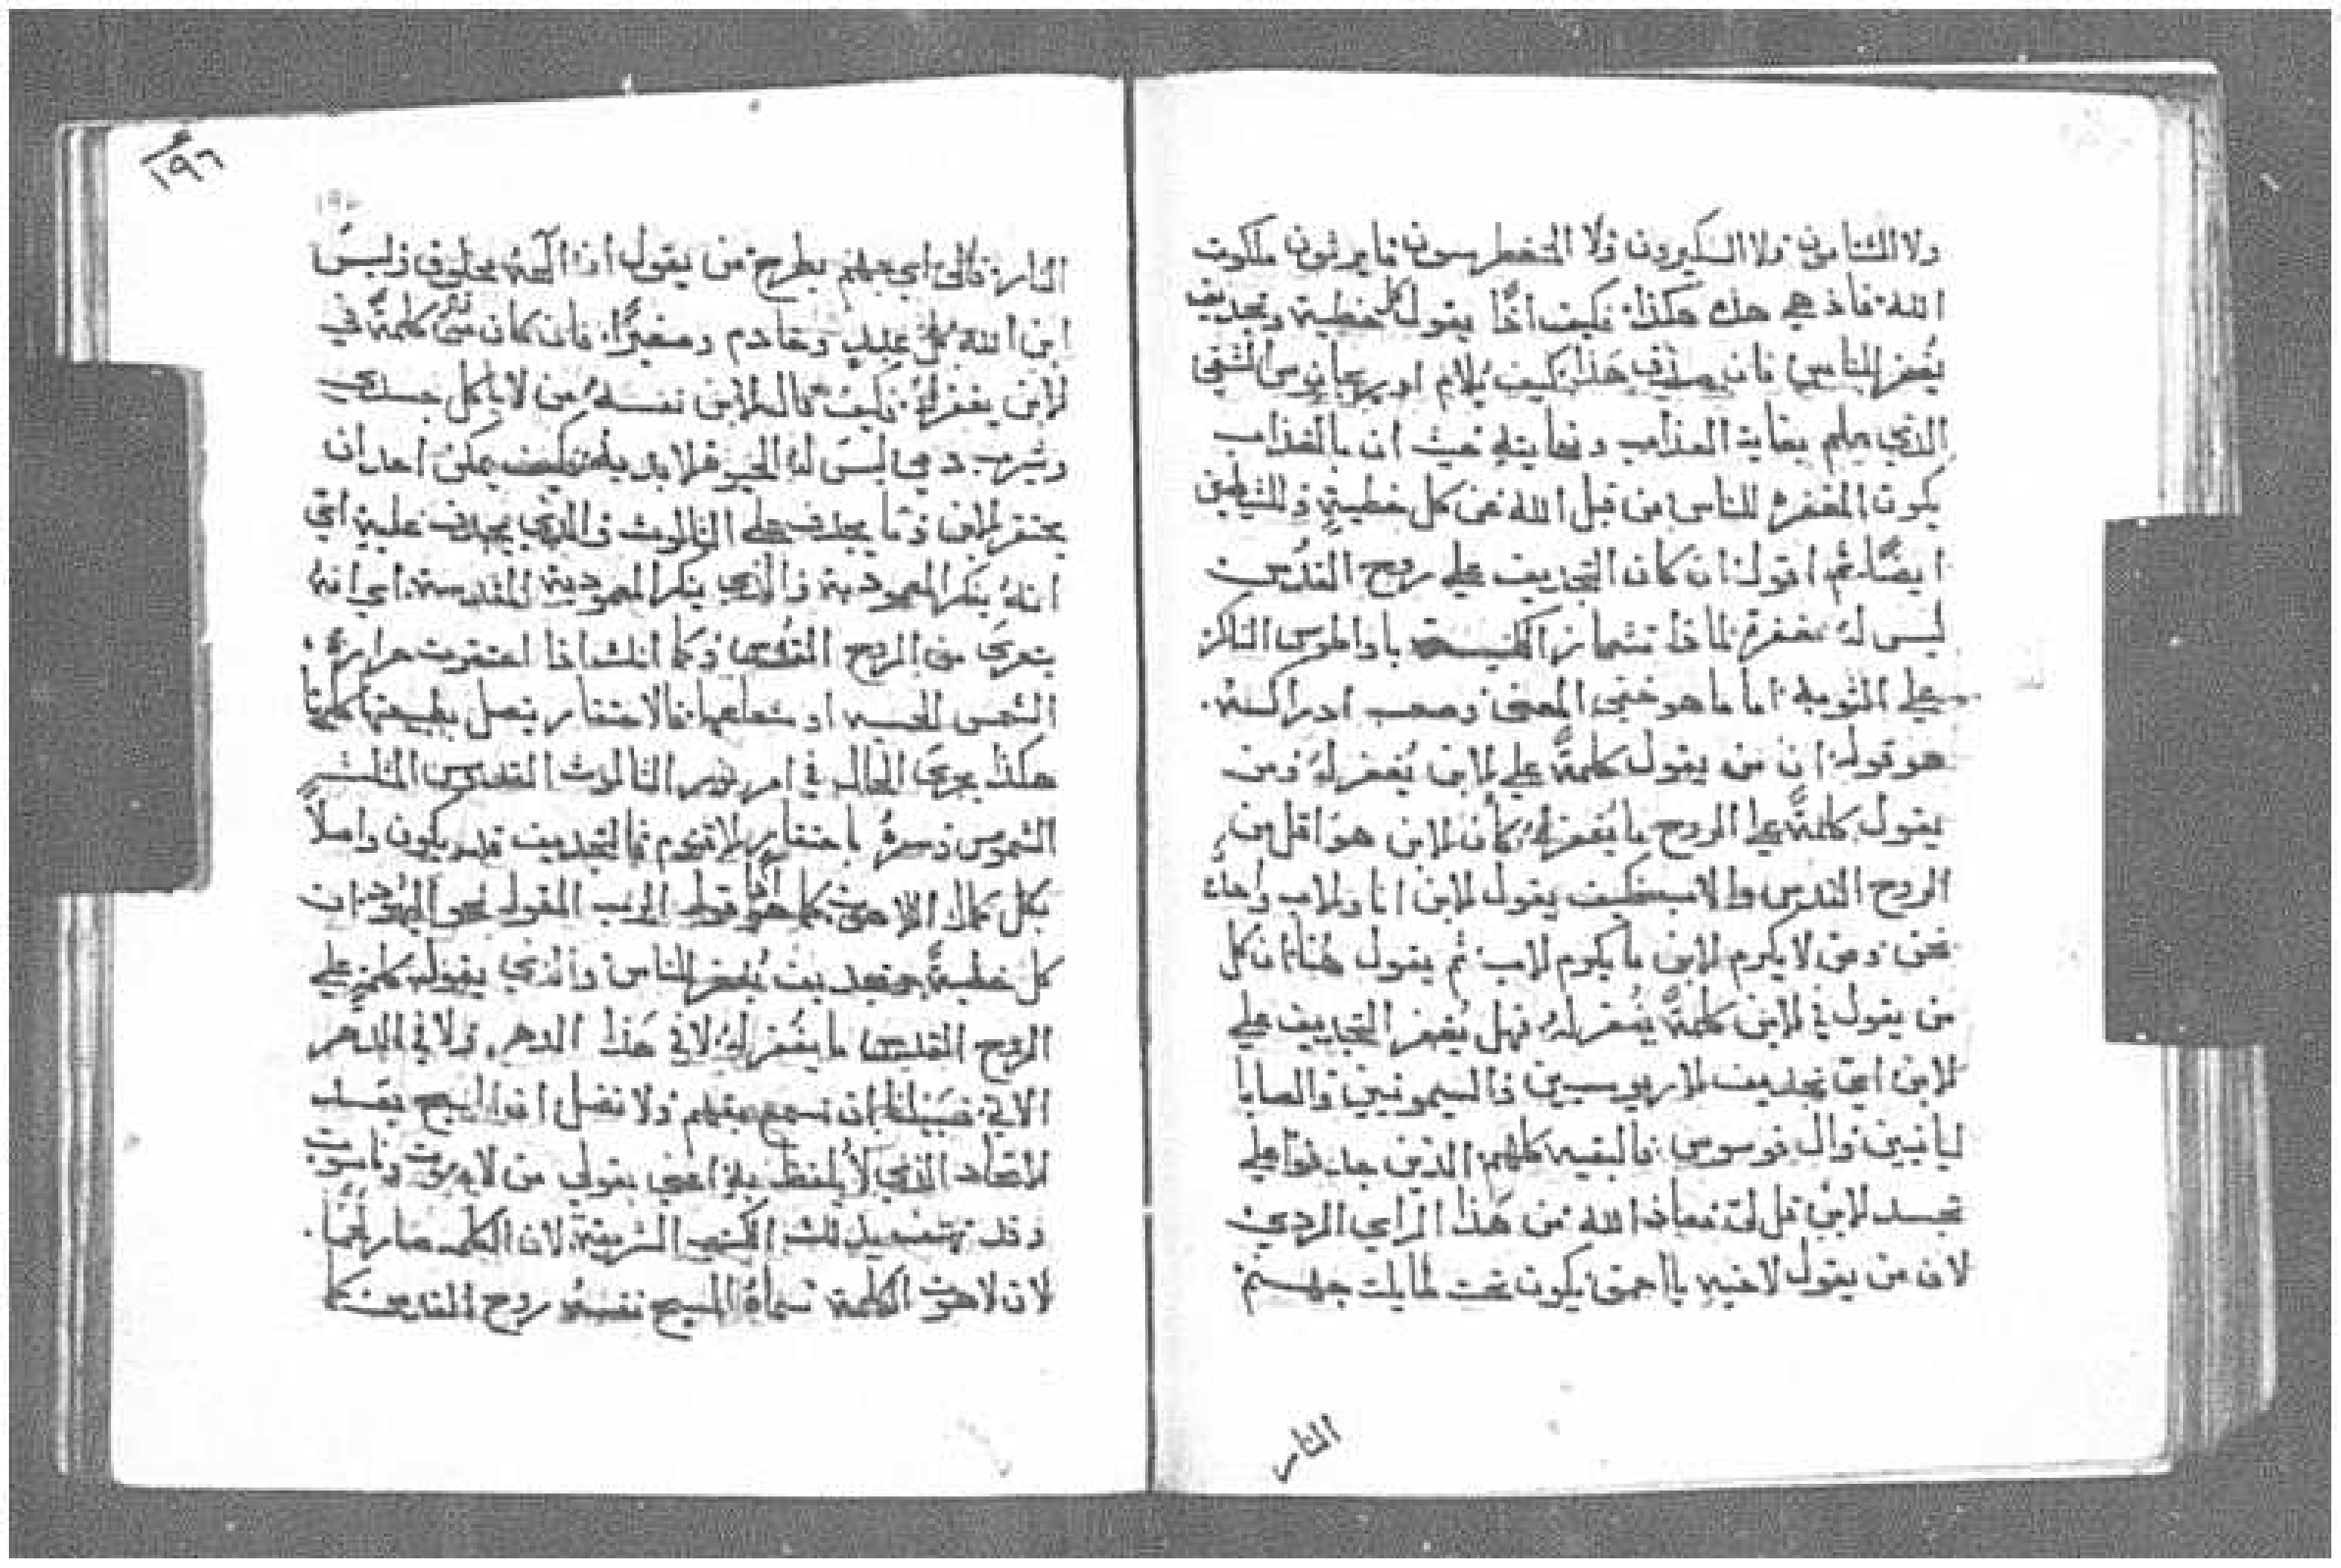 ولا الشتامون ولا السكيرون ولا الخطرسون فما يرثون ملكوت
الله فاذ هي هذه هكذا فكيف اذًا يقول كل خطية وتجديف
يُغفر للناس فان صدق هذا كيف يُلام اوريجانوس الشقي
الذي يعلم بغاية العذاب ونهايته حيث ان بالعذاب
يكون المغفرة للناس من قبل الله عن كل خطيةٍ وللشياطين
ايضًا ثم اقول ان كان التجديف على روح القدس
ليس له مغفرة لماذا الكنيسة
على التوبة اما ما هو خفي المعنى وصعب ادراكه
هو قوله ان من يقول كلمةً على الابن يُغفر له ومن
يقول كلمةً على الروح ما يُغفر له كأن الابن هو اقل من
الروح القدس والاب فكيف يقول الابن انا والاب واحدٌ
نحن ومن لا يكرم الابن ما يكرم الاب ثم يقول هنا ان كل
من يقول في الابن كلمةً يُغفر له فهل يُغفر التجديف على
الابن اعني تجديف الاريوسيين والسيمونيين والصابا
ليانيين وال نوسوس والبقيه كلهم الذين جدفوا على
تجسد الابن قل لي معاذ الله من هذا الراي الردي
لان من يقول لاخيه يا احمق يكون تحت طايلت جهنم
النار
١٩٦
النار فالى اي جهنم يطرح من يقول ان الهه مخلوق وليس
ابن الله بل عبد وخادم وصغيرًا فان كان من كلمةً في
الابن يغفر له فكيف قال الابن نفسه من لا ياكل جسدي
ويشرب دمي ليس له الحيوة الابديه فكيف يمكن احد ان
يحتقر الابن وما يجدف على الثالوث والذي يجدف عليه اي
انه ينكر المعمودية والذي ينكر المعمودية المقدسة اي انه
يتعرى من الروح القدس وكما انك اذا احتقرت حرارة
الشمس الحسيه او شعاعها فالاحتقار يتصل بطبيعتها كليتها
هكذا يجرى الحال في امر نور الثالوث القدوس المثلث
الشموس وسره باحتقار الاقنوم فالتجديف قد يكون واصلاً
بكل كمال اللاهوت كما هو قول الرب المقول نحو اليهود ان
كل خطيةً وتجديف يُغفر للناس والذي يقول كلمةٍ على
الروح القدس ما يغُفر له لا في هذا الدهر ولا في الدهر
الاتي فسبيلنا ان نسمع بفهم ولا نضل ان المسيح
الاتحاد الذي لا يلفظ به اعني بقولي من لاهوت وناسوت
وقد الكتب الشريفة لان الكلمه صار لحمًا
لان لاهوت الكلمة سماهُ المسيح نفسهُ روح القدس كما